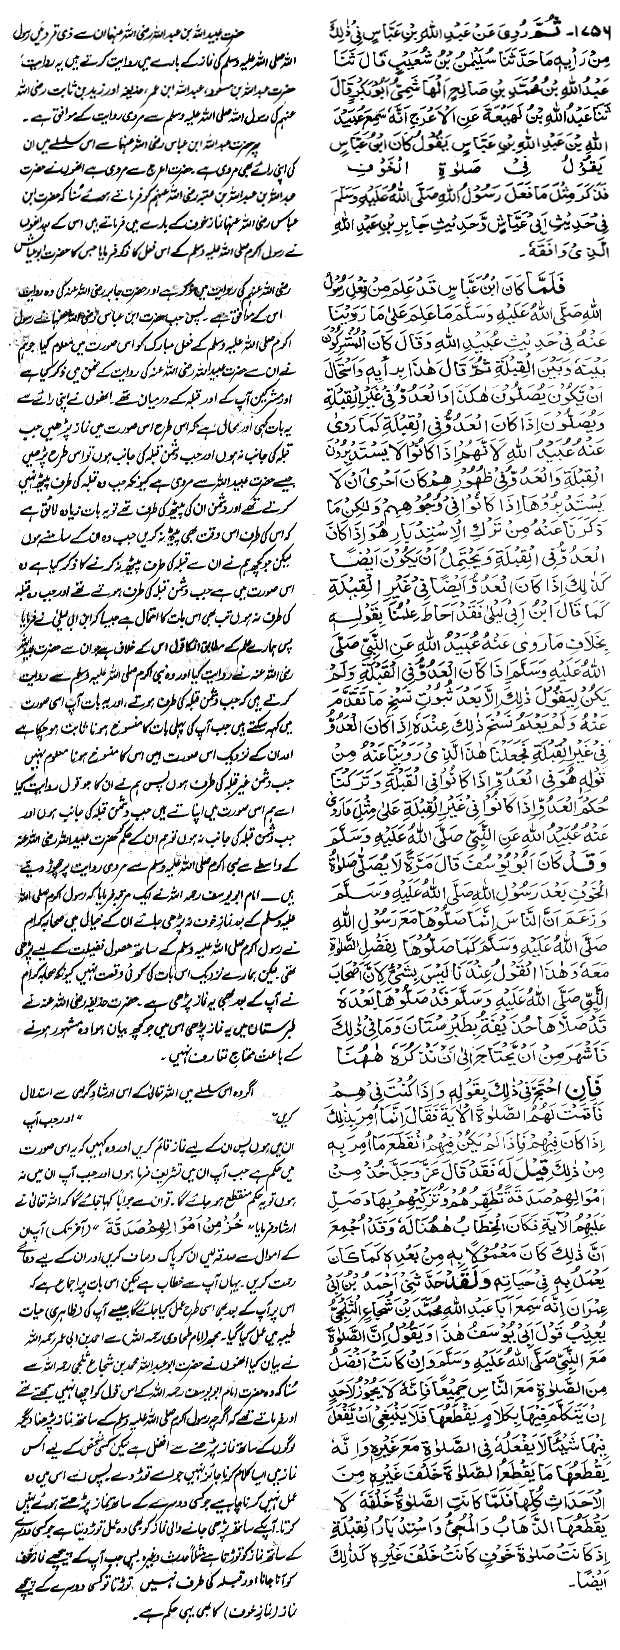 ۱۷۵۶- ثُمَّ رُوِیَ عَنْ عَبْدِ اللّٰہِ بْنِ عَبَّاسٍ فِیْ ذٰلِكَ
مِنْ رَأْیِہٖ مَا حَدَّثَنَا سُلَیْمٰنُ بْنُ شُعَیْبٍ قَالَ ثَنَا
عَبْدُ اللّٰہِ بْنُ مُحَمَّدِ بْنِ صَالِحٍ الْہَاشِمِیُّ اَبُوْبَکْرٍ قَالَ
ثَنَا عَبْدُ اللّٰہِ بْنُ لَہِیْعَۃَ عَنِ الْاَعْرَجِ اَنَّہٗ سَمِعَ عُبَیْدَ
اللّٰہِ بْنَ عَبْدِ اللّٰہِ بْنِ عَبَّاسٍ یَقُوْلُ کَانَ ابْنُ عَبَّاسٍ
یَقُوْلُ فِیْ صَلٰوۃِ الْخَوْفِ
فَذَکَرَ مِثْلَ مَا فَعَلَ رَسُوْلُ اللّٰہِ صَلَّی اللّٰہُ عَلَیْہِ وَسَلَّمَ
فِیْ حَدِیْثِ اَبِیْ عَیَّاشٍ وَحَدِیْثِ جَابِرِ بْنِ عَبْدِ اللّٰہِ
الَّذِیْ وَافَقَہٗ۔
فَلَمَّا کَانَ ابْنُ عَبَّاسٍ قَدْ عَلِمَ مِنْ فِعْلِ رَسُوْلِ
اللّٰہِ صَلَّی اللّٰہُ عَلَیْہِ وَسَلَّمَ مَا عَلِمَ عَلٰی مَا رَوَیْنَا
عَنْہُ فِیْ حَدِیْثِ عُبَیْدِ اللّٰہِ وَقَالَ کَانَ الْمُشْرِکُوْنَ
بَیْنَہٗ وَبَیْنَ الْقِبْلَۃِ ثُمَّ قَالَ ھٰذَا بِرَأْیِہٖ وَاسْتَحَالَ
اَنْ یَّکُوْنَ یُصَلُّوْنَ ھٰکَذَا وَالْعَدُوُّ فِیْ غَیْرِ الْقِبْلَۃِ
وَیُصَلُّوْنَ اِذَا کَانَ الْعَدُوُّ فِی الْقِبْلَۃِ کَمَا رَوٰی
عَنْہُ عُبَیْدُ اللّٰہِ لِاَنَّہُمْ اِذَا کَانُوْا لَا یَسْتَدْبِرُوْنَ
الْقِبْلَۃَ وَالْعَدُوُّ فِیْ ظُہُوْرِھِمْ کَانَ اَحْرٰی اَنْ لَّا
یَسْتَدْبِرُوْھَا اِذَا کَانُوْا فِیْ وُجُوْھِہِمْ وَلٰکِنَّ مَا
ذَکَرْنَا عَنْہُ مِنْ تَرْكِ الْاِسْتِدْبَارِ ھُوَ اِذَا کَانَ
الْعَدُوُّ فِی الْقِبْلَۃِ وَیَحْتَمِلُ اَنْ یَّکُوْنَ اَیْضًا
کَذٰلِكَ اِذَا کَانَ الْعَدُوُّ اَیْضًا فِیْ غَیْرِ الْقِبْلَۃِ
کَمَا قَالَ ابْنُ اَبِیْ لَیْلٰی فَقَدْ اَحَاطَ عِلْمُنَا بِقَوْلِہٖ
بِخِلَافِ مَا رَوٰی عَنْہُ عُبَیْدُ اللّٰہِ عَنِ النَّبِیِّ صَلَّی
اللّٰہُ عَلَیْہِ وَسَلَّمَ اِذَا کَانَ الْعَدُوُّ فِی الْقِبْلَۃِ وَلَمْ
یَکُنْ لِّیَقُوْلَ ذٰلِكَ اِلَّا بَعْدَ ثُبُوْتِ نَسْخِ مَا تَقَدَّمَ
عِنْدَہٗ وَلَمْ یَعْلَمْ نَسْخَ ذٰلِكَ عِنْدَہٗ اِذَا کَانَ الْعَدُوُّ
فِیْ غَیْرِ الْقِبْلَۃِ فَجَعَلْنَا ھٰذَا الَّذِیْ رَوَیْنَا عَنْہُ مِنْ
قَوْلِہٖ ھُوَ فِی الْعَدُوِّ اِذَا کَانُوْا فِی الْقِبْلَۃِ وَتَرَکْنَا
حُکْمَ الْعَدُوِّ اِذَا کَانُوْا فِیْ غَیْرِ الْقِبْلَۃِ عَلٰی مِثْلِ مَا رَوٰی
عَنْہُ عُبَیْدُ اللّٰہِ عَنِ النَّبِیِّ صَلَّی اللّٰہُ عَلَیْہِ وَسَلَّمَ
وَقَدْ کَانَ اَبُوْ یُوْسُفَ قَالَ مَرَّۃً لَا یُصَلّٰی صَلٰوۃُ
الْخَوْفِ بَعْدَ رَسُوْلِ اللّٰہِ صَلَّی اللّٰہُ عَلَیْہِ وَسَلَّمَ
وَزَعَمَ اَنَّ النَّاسَ اِنَّمَا صَلَّوْھَا مَعَ رَسُوْلِ اللّٰہِ
صَلَّی اللّٰہُ عَلَیْہِ وَسَلَّمَ کَمَا صَلَّوْھَا لِفَضْلِ الصَّلٰوۃِ
مَعَہٗ وَھٰذَا الْقَوْلُ عِنْدَنَا لَیْسَ بِشَیْءٍ لِاَنَّ اَصْحَابَ
النَّبِیِّ صَلَّی اللّٰہُ عَلَیْہِ وَسَلَّمَ قَدْ صَلَّوْھَا بَعْدَہٗ
قَدْ صَلَّاھَا حُذَیْفَۃُ بِطَبَرِسْتَانَ وَمَا فِیْ ذٰلِكَ
فَاَشْہَرُ مِنْ اَنْ یُّحْتَاجَ اِلٰی اَنْ نَّذْکُرَہٗ ھٰہُنَا
فَاِنِ احْتَجَّ فِیْ ذٰلِكَ بِقَوْلِہٖ وَاِذَا کُنْتَ فِیْہِمْ
فَاَقَمْتَ لَہُمُ الصَّلٰوۃَ الْاٰیَۃَ فَقَالَ اِنَّمَا اُمِرَ بِذٰلِكَ
اِذَا کَانَ فِیْہِمْ فَاِذَا لَمْ یَکُنْ فِیْہِمْ اِنْقَطَعَ مَا اُمِرَ بِہٖ
مِنْ ذٰلِكَ قِیْلَ لَہٗ فَقَدْ قَالَ عَزَّ وَجَلَّ خُذْ مِنْ
اَمْوَالِہِمْ صَدَقَۃً تُطَہِّرُھُمْ وَتُزَکِّیْہِمْ بِہَا وَصَلِّ
عَلَیْہِمُ الْاٰیَۃَ فَکَانَ الْخِطَابُ ھٰہُنَا لَہٗ وَقَدْ اُجْمِعَ
اَنَّ ذٰلِكَ کَانَ مَعْمُوْلًا بِہٖ مِنْ بَعْدِہٖ کَمَا کَانَ
یَعْمَلُ بِہٖ فِیْ حَیَاتِہٖ وَلَقَدْ حَدَّثَنِیْ اَحْمَدُ بْنُ اَبِیْ
عِمْرَانَ اَنَّہٗ سَمِعَ اَبَا عَبْدِ اللّٰہِ مُحَمَّدَ بْنَ شُجَاعٍ الثَّلْجِیَّ
یُعِیْبُ قَوْلَ اَبِیْ یُوْسُفَ ھٰذَا وَیَقُوْلُ اِنَّ الصَّلٰوۃَ
مَعَ النَّبِیِّ صَلَّی اللّٰہُ عَلَیْہِ وَسَلَّمَ وَاِنْ کَانَتْ اَفْضَلَ
مِنَ الصَّلٰوۃِ مَعَ النَّاسِ جَمِیْعًا فَاِنَّہٗ لَا یَجُوْزُ لِاَحَدٍ
اَنْ یَّتَکَلَّمَ فِیْہَا بِکَلَامٍ یَقْطَعُہَا فَلَا یَنْبَغِیْ اَنْ یَّفْعَلَ
فِیْہَا شَیْئًا لَّا یَفْعَلُہٗ فِی الصَّلٰوۃِ مَعَ غَیْرِہٖ وَاِنَّہٗ
یَقْطَعُہَا مَا یَقْطَعُ الصَّلٰوۃَ خَلْفَ غَیْرِہٖ مِنَ
الْاَحْدَاثِ کُلِّہَا فَلَمَّا کَانَتِ الصَّلٰوۃُ خَلْفَہٗ لَا
یَقْطَعُہَا الذَّھَابُ وَالْمَجِیْءُ وَاسْتِدْبَارُ الْقِبْلَۃِ
اِذَا کَانَتْ صَلٰوۃَ خَوْفٍ کَانَتْ خَلْفَ غَیْرِہٖ کَذٰلِكَ
اَیْضًا۔
حضرت عبیداللہ بن عبداللہ رضی اللہ عنہما ان سے ذی قرد میں رسول
اللہ صلی اللہ علیہ وسلم کی نماز کے بارے میں روایت کرتے ہیں یہ روایت
حضرت عبداللہ بن مسعود، عبداللہ ابن عمر، حذیفہ اور زید بن ثابت رضی اللہ
عنہم کی رسول اللہ صلی اللہ علیہ وسلم سے مروی روایت کے موافق ہے۔
پھر حضرت عبداللہ ابن عباس رضی اللہ عنہما سے اس سلسلے میں ان
کی اپنی رائے بھی مروی ہے۔ حضرت اعرج سے مروی ہے انھوں نے حضرت
عبیداللہ بن عبداللہ بن عتبہ رضی اللہ عنہم کو فرماتے ہوئے سُنا کہ حضرت ابن
عباس رضی اللہ عنہما نماز خوف کے بارے میں فرماتے ہیں اس کے بعد انھوں
نے رسول اکرم صلی اللہ علیہ وسلم کے اس فعل کا ذکر فرمایا جس کا حضرت ابو عیاش
رضی اللہ عنہم کی روایت میں ذکر ہے اور حضرت جابر رضی اللہ عنہ کی وہ روایت
اس کے موافق ہے۔ پس جب حضرت ابن عباس رضی اللہ عنہما نے رسول
اکرم صلی اللہ علیہ وسلم کے فعل مبارک کو اس صورت میں معلوم کیا جو ہم
نے ان سے حضرت عبیداللہ رضی اللہ عنہ کی روایت کے ضمن میں ذکر کیا ہے
اور مشرکین آپ کے اور قبلہ کے درمیان تھے۔ انھوں نے اپنی رائے سے
یہ بات کہی اور محال ہے کہ اس طرح اس صورت میں نماز پڑھیں جب
قبلہ کی جانب نہ ہوں اور جب دشمن قبلہ کی جانب ہوں تو اس طرح پڑھیں
جیسے حضرت عبیداللہ سے مروی ہے کیونکہ جب وہ قبلہ کی طرف پیٹھ نہیں
کرتے تھے اور دشمن ان کی پیٹھ کی طرف تھے تو یہ بات زیادہ لائق ہے
کہ اس کی طرف اس وقت بھی پیٹھ نہ کریں جب وہ ان کے سامنے ہوں
لیکن جو کچھ ہم نے ان سے قبلہ کی طرف پیٹھ نہ کرنے کا ذکر کیا ہے وہ
اس صورت میں ہے جب دشمن قبلہ کی طرف ہوتے تھے اور جب وہ قبلہ
کی طرف نہ ہوں تب بھی اس بات کا احتمال ہے جیسا کہ ابن ابی لیلیٰ نے فرمایا
پس ہمارے علم کے مطابق انکا قول اس کے خلاف ہے جو ان سے حضرت عبیداللہ
رضی اللہ عنہ نے روایت کیا اور وہ نبی اکرم صلی اللہ علیہ وسلم سے روایت
کرتے ہیں کہ جب دشمن قبلہ کی طرف ہوتے اور یہ بات آپ اسی صورت
میں کہہ سکتے ہیں جب آپ کی پہلی بات کا منسوخ ہونا ثابت ہو چکا ہے
اور ان کے نزدیک اس صورت میں اس کا منسوخ ہونا معلوم نہیں
جب دشمن غیر قبلہ کی طرف ہوں پس ہم نے ان کا جو قول روایت کیا
اسے ہم اس صورت میں اپناتے ہیں جب دشمن قبلہ کی جانب ہوں اور
جب قبلہ کی جانب نہ ہوں تو ہم ان کے حکم حضرت عبیداللہ رضی اللہ عنہ
کے واسطے سے نبی اکرم صلی اللہ علیہ وسلم سے مروی روایت پر چھوڑ دیتے
ہیں — امام ابو یوسف رحمہ اللہ نے ایک مرتبہ فرمایا کہ رسول اکرم صلی اللہ
علیہ وسلم کے بعد نماز خوف نہ پڑھی جائے ان کے خیال میں صحابہ کرام
نے رسول اکرم صلی اللہ علیہ وسلم کے ساتھ حصول فضیلت کے لیے پڑھی
تھی لیکن ہمارے نزدیک اس بات کی کوئی وقعت نہیں کیونکہ صحابہ کرام
نے آپ کے بعد بھی یہ نماز پڑھی ہے۔ حضرت حذیفہ رضی اللہ عنہ نے
طبرستان میں یہ نماز پڑھی اس میں جو کچھ بیان ہوا وہ مشہور ہونے
کے باعث محتاج تعارف نہیں۔
اگر وہ اس سلسلے میں اللہ تعالیٰ کے اس ارشاد گرامی سے استدلال
کریں " اور جب آپ
ان میں ہوں پس ان کے لیے نماز قائم کریں اور وہ کہیں کہ یہ اس صورت
میں حکم ہے جب آپ ان میں تشریف فرما ہوں اور جب آپ ان میں نہ
ہوں تو یہ حکم منقطع ہو جائے گا۔ تو ان سے جواباً کہا جائے گا کہ اللہ تعالیٰ نے
ارشاد فرمایا "خُذْ مِنْ اَمْوَالِہِمْ صَدَقَۃً" (آخر تک) آپ ان
کے اموال سے صدقہ لیں ان کو پاک وصاف کریں اور ان کے لیے دعائے
رحمت کریں۔ یہاں آپ سے خطاب ہے لیکن اس بات پر اجماع ہے کہ
اس پر آپ کے بعد بھی اسی طرح عمل کیا جائے گا جیسے آپ کی (ظاہری) حیات
طیبہ میں عمل کیا گیا۔ مجھ (امام طحاوی رحمہ اللہ) سے احمد بن ابی عمر رحمہ اللہ
نے بیان کیا انھوں نے حضرت ابو عبداللہ محمد بن شجاع ثلجی رحمہ اللہ سے
سُنا کہ وہ حضرت امام ابو یوسف رحمہ اللہ کے اس قول کو اچھا نہیں سمجھتے تھے
اور فرماتے تھے کہ اگرچہ رسول اکرم صلی اللہ علیہ وسلم کے ساتھ نماز پڑھنا دیگر
لوگوں کے ساتھ نماز پڑھنے سے افضل ہے لیکن کسی شخص کے لیے اس
نماز میں ایسا کلام کرنا جائز نہیں جو اسے توڑ دے پس اسے اس میں وہ
عمل نہیں کرنا چاہیے جو کسی دوسرے کے ساتھ نماز پڑھتے ہوئے نہیں
کرتا۔ آپکے ساتھ پڑھی جانے والی نماز کو بھی وہ عمل توڑ دیتا ہے جو کسی دوسرے
کے ساتھ نماز کو توڑتا ہے مثلاً حدث وغیرہ پس جب آپ کے پیچھے نماز خوف
کو آنا جانا اور قبلہ کی طرف نہیں توڑتا تو کسی دوسرے کے پیچھے
نماز (نماز خوف) کا بھی یہی حکم ہے۔